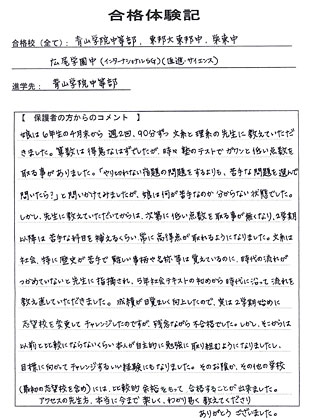 合格体験記
合格校（全て）: 青山学院中等部、東邦大東邦中、栄東中
広尾学園中（インターナショナルSG）（医進・サイエンス）
進学先: 青山学院中等部
【 保護者の方からのコメント 】
娘は6年生の4月末から 週2回、90分ずつ 文系と理系の先生に教えていただ
きました。算数は得意なはずでしたが、時々塾のテストで ガクンと低い点数を
取る事がありました。「やり切れない宿題の問題をするよりも、苦手な問題を選んで
問いたら？」と問いかけてみましたが、娘は何が苦手なのか 分からない状態でした。
しかし、先生に教えていただいてからは、次第に低い点数を取る事が無くなり、2学期
以降は 苦手な科目を補えるくらい 常に高得点が取れるようになりました。文系は
社会、特に歴史が苦手で 難しい事柄や名称等は覚えているのに、時代の流れが
つかめていないと先生に指摘され、5年社会テキストの初めから時代に沿って流れを
教え直していただきました。 成績が目覚ましく向上したので、実は2学期始めに
志望校を変更して チャレンジしたのですが、残念ながら不合格でした。しかし、そこからは
以前と比較にならないくらい 本人が自主的に勉強に取り組むようになりましたし、
目標に向かってチャレンジするいい経験にもなりました。 そのお陰か、その他の学校
（最初の志望校を含め）には、比較的余裕をもって 合格することが出来ました。
アクセスの先生方、本当に今まで楽しく、わかり易く教えてくださり
ありがとうございました。